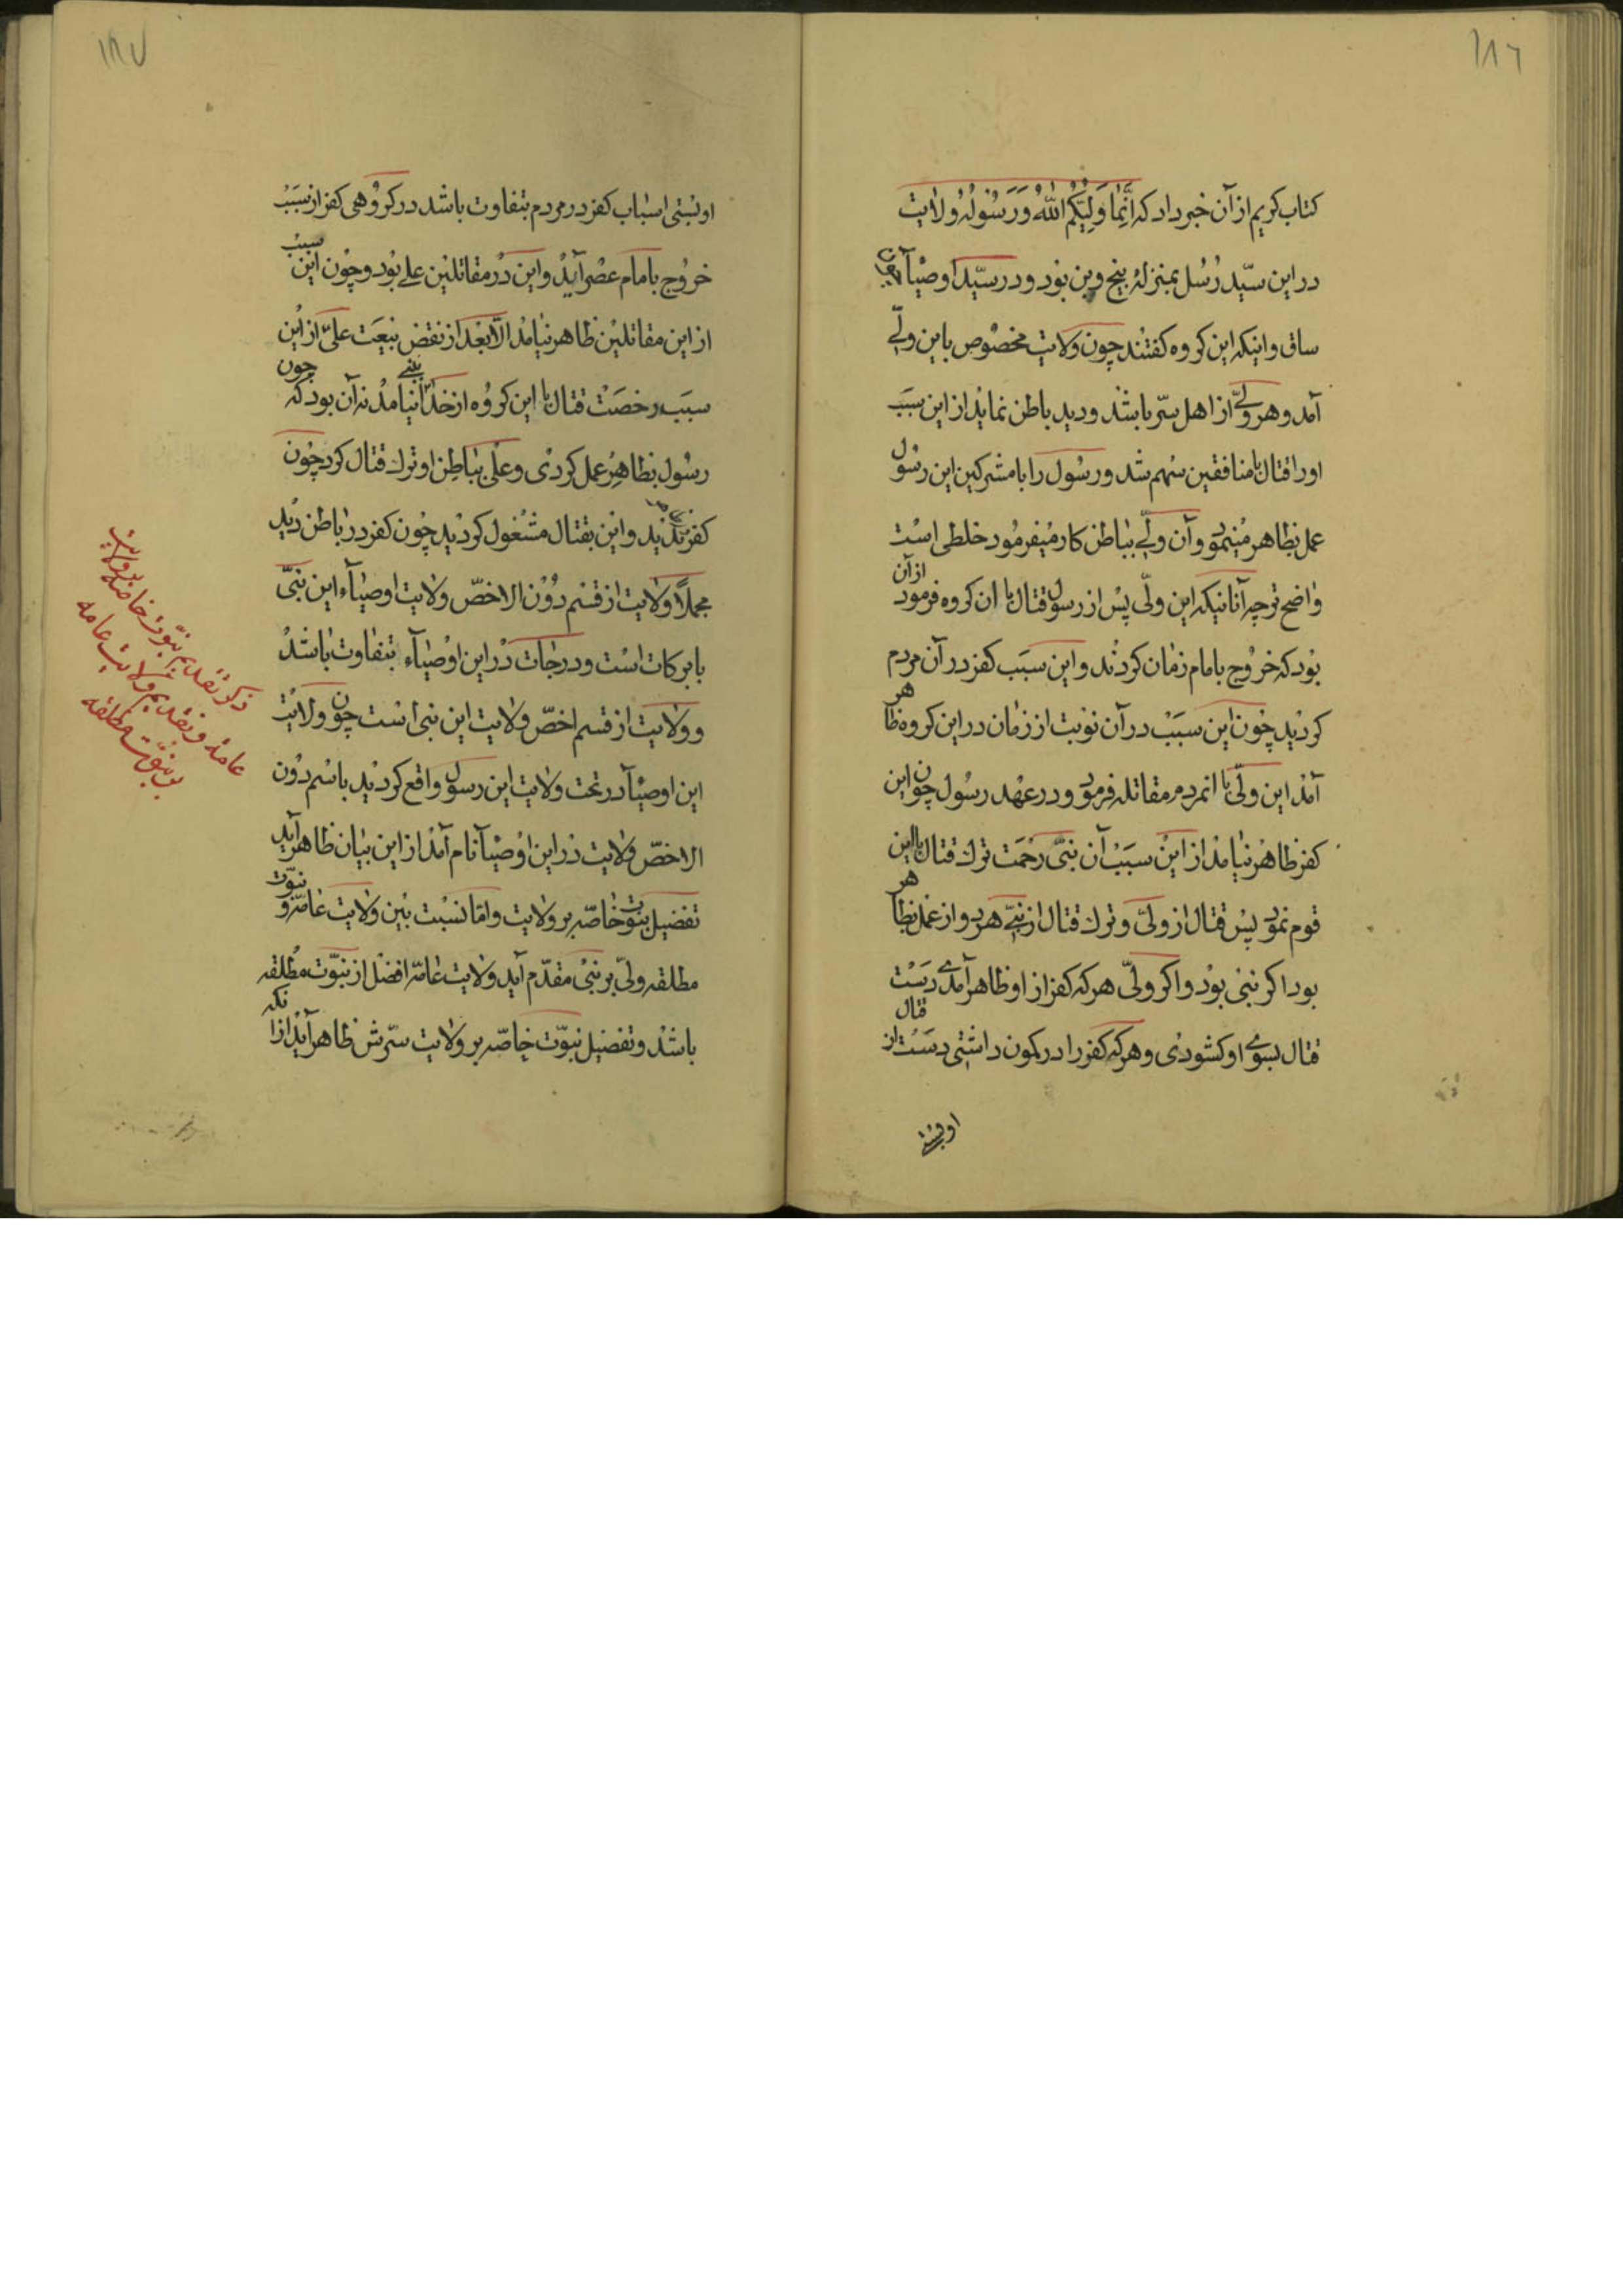 ١٨٦
کتاب کریم از آن خبر داد که اِنَّمَا وَلِیُّکُمُ اللهُ وَرَسُولُهُ ولایت
در این سیّد رُسُل بمنزلهٔ بیخ وبن بود و در سیّد اوصیآ
ساق وانیکه این کروه کفتند چون ولایت مخصوص باین ولیّ
آمد وهر ولیّ از اهل سرّ باشد و دید باطن نماید از این سبب
اورا قتال با منافقین سهم شد ورسول را با مشرکین این رسول
عمل بظاهر مینمود وآن ولیّ بباطن کار میفرمود خلطی است
واضح نوچه آنانیکه این ولّی پس از رسول قتال با ان کروه فرمود از آن
بود که خروج بامام زمان کردند و این سبب کفر در آن مردم
کردید چون این سبب در آن نوبت از زمان در این کروه ظاهر
آمد این ولّی با انمردم مقاتله فرمود ودر عهد رسول چون این
کفر ظاهر نیامد از این سبب آن نبیّ رحمت ترک قتال با این
قوم نمود پس قتال از ولیّ وترک قتال از نبیّ هردو از عمل بظاهر
بود اکر نبی بود و اکر ولیّ هرکه کفر از او ظاهر آمدی دست
قتال بسوی او کشودی وهرکه کفر را در کمون داشتی دست از قتال
او بستی
١٨٧
او بستی اسباب کفر در مردم بتفاوت باشد در کروهی کفر از سبب
خروج بامام عصر آید واین در مقاتلین علی بود وچون این سبب
از این مقاتلین ظاهر نیامد الّا بعد از نقض بیعت علیّ از این
سبب رخصت قتال با این کروه از خدا نیامد نه آن بود که چون
رسول بظاهر عمل کردی وعلی بباطن او ترک قتال کرد چون
کفر ندید واین بقتال مشغول کردید چون کفر در باطن دید
مجملاً ولایت از قسم دون الاخصّ ولایت اوصیآء این نبیّ
با برکات است و درجات در این اوصیآء بتفاوت باشد
و ولایت از قسم اخصّ ولایت این نبی است چون ولایت
این اوصیآ در تحت ولایت این رسول واقع کردید باسم دون
الاخصّ ولایت در این اوصیآ نام آمد از این بیان ظاهر آید
تفضیل نبوّت خاصّه بر ولایت وامّا نسبت بین ولایت عامّه و نبوّت
مطلقه ولیّ بر نبیّ مقدّم آید ولایت عامّه افضل از نبوّت مطلقه
باشد وتفضیل نبوّت خاصّه بر ولایت سرّش ظاهر آید از انکه
ذکر تقدیم نبّوت خاصّه بر ولایت
عامه وتقدیم ولایت عامه
بر نبوّت مطلقه